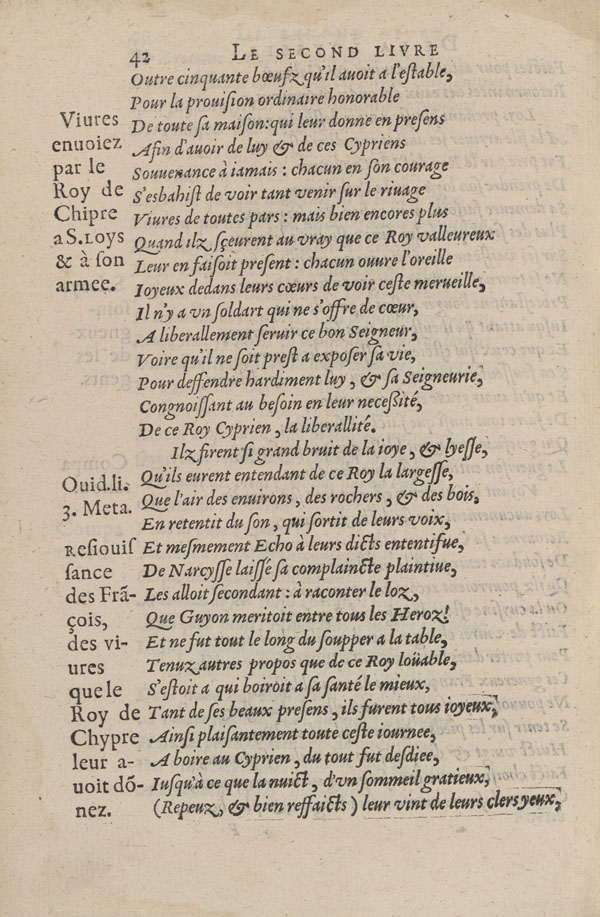 42 LE SECOND LIVRE
Outre cinquante bœufz qu'il auoit a l'estable,
Pour la prouision ordinaire honorable
De toute sa maison: qui leur donne en presens
Afin d'auoir de luy & de ces Cypriens
Souuenance à iamais : chacun en son courage
S'esbahist de voir tant venir sur le riuage
Viures de toutes pars : mais bien encores plus
Quand ilz sçeurent au vray que ce Roy valleureux
Leur en faisoit present : chacun ouure l'oreille
Ioyeux dedans leurs cœurs de voir ceste merueille,
Il n'y a vn soldart qui ne s'offre de cœur,
A liberallement seruir ce bon Seigneur,
Voire qu'il ne soit prest a exposer sa vie,
Pour deffendre hardiment luy, & sa Seigneurie,
Congnoissant au besoin en leur necessité,
De ce Roy Cyprien, la liberallité.
Ilz firent si grand bruit de la ioye, & lyesse,
Qu'ils eurent entendant de ce Roy la largesse,
Que l'air des enuirons, des rochers, & des bois,
En retentit du son, qui sortit de leurs voix,
Et mesmement Echo à leurs dicts ententifue,
De Narcysse laissé sa complaincte plaintiue,
Les alloit secondant : à raconter le loz,
Que Guyon meritoit entre tous les Heroz!
Et ne fut tout le long du soupper a la table,
Tenuz autres propos que de ce Roy loüable,
S'estoit a qui boiroit a sa santé le mieux,
Tant de ses beaux presens, ils furent tous ioyeux,
Ainsi plaisantement toute ceste iournee,
A boire au Cyprien, du tout fut desdiee,
Iusqu'à ce que la nuict, d'vn sommeil gratieux,
(Repeuz, & bien reffaicts) leur vint de leurs clers yeux,
Viures
enuoiez
par le
Roy de
Chipre
a S. LOYS
& à son
armee.
Ouid. li.
3. Meta.
Resiouis
sance
des Frã-
çois,
des vi-
ures
que le
Roy de
Chypre
leur a-
uoit dõ-
nez.